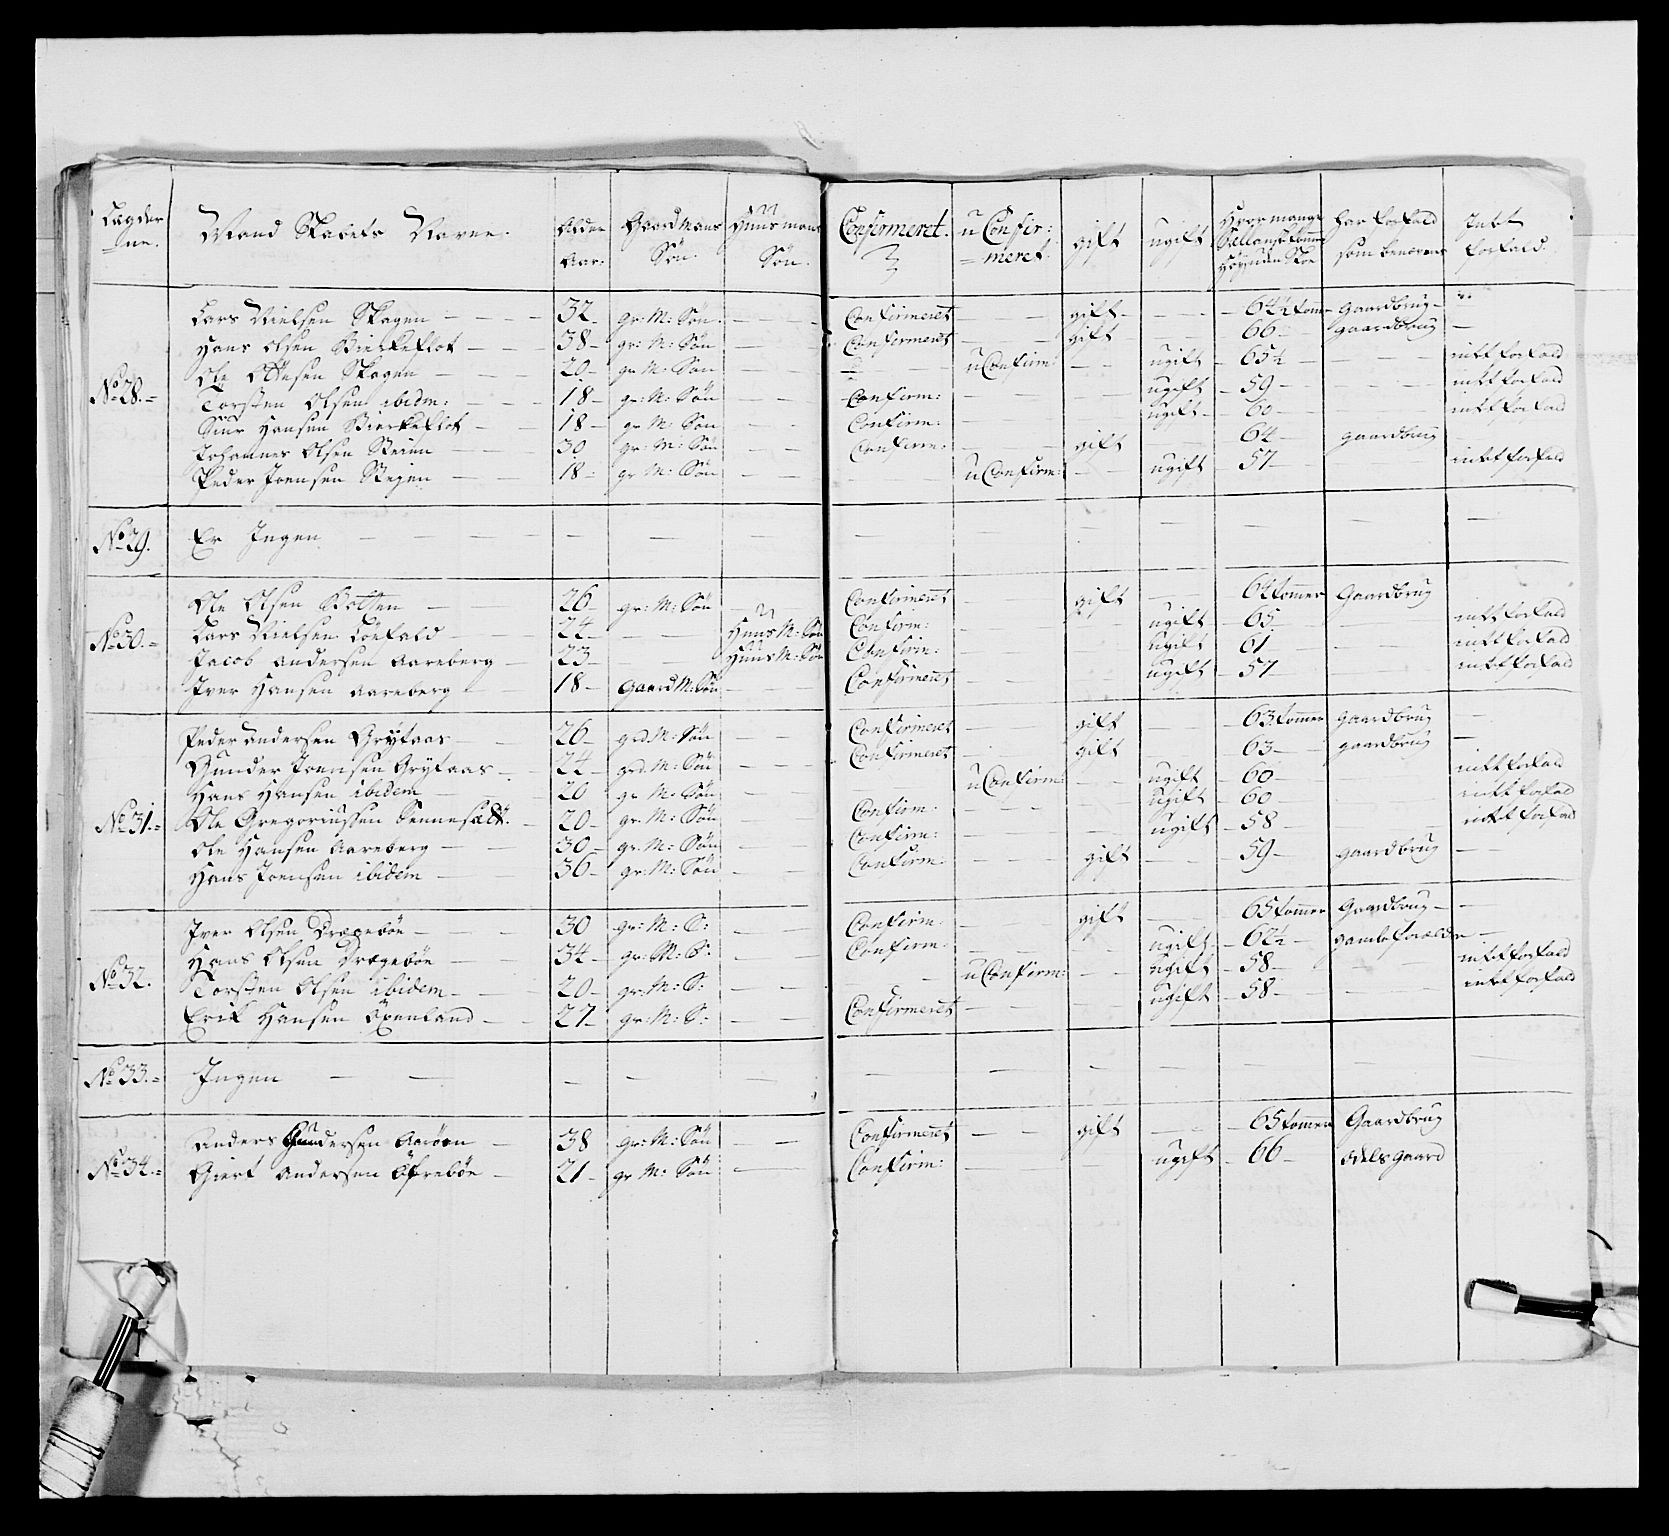 Lægder ne. Mand Skabets Navne. Alder Aar. Gaard Mans Søn. Huus mans Søn. Confirmeret. u Confir: meret. gift ugift Hvor mange Siællandsk tomer Høy uden Skoe har forfald som benævnes Intet forfald.
Lars Nielsen Skagen 32 gr: M: Søn Confirmeret gift 64½ tomer gaardbrug
Hans Olsen Bierkeflot 38 gr: M: Søn Confirmeret gift 66 gaardbrug
Ole Ottesen Skagen 20 gr M: Søn u Confirm ugift 65½ intet forfald
No 28. Torsten Olsen ibidm: 18 gr: M: Søn Confirm: ugift 59 intet forfald
Siur Hansen Bierkeflot 18 gr M: Søn Confirm: ugift 60 intet forfald
Johannes Olsen 30 gr: M: Søn Confirm: gift 64 gaardbrug
Peder Joensen 18 gr M: Søn u Confirm: ugift 57 intet forfald
No 29. Er Ingen
Ole Olsen Botten 26 gr: M: Søn Confirmeret gift 64 tomer Gaardbrug
No 30. Lars Nielsen Lönfald 24 Huus M: Søn Confirm: ugift 65 intet forfald
Jacob Andersen Aareberg 23 Huus M: Søn Confirm: ugift 61 intet forfald
Iver Hansen Aareberg 18 Gaard M: Søn Confirmeret ugift 57 intet forfald
Peder Andersen Grytaas 26 grd M: Søn Confirmeret gift 63 tomer gaardbrug
Gunder Joensen Grytaas 24 grd. M: Søn Confirmeret gift 63 gaardbrug
Hans Hansen ibidem 20 gr M: Søn u Confirm: ugift 60 intet forfald
No 31. Ole Gregoriussen 20 gr: M: Søn Confirm: ugift 60 intet forfald
Ole Hansen Aareberg 30 gr: M: Søn Confirm: ugift 58 intet forfald
Hans Joensen ibidem 36 gr: M: Søn Confirm: gift 59 gaardbrug
Iver Olsen Drægebøe 30 gr: M: S: Confirm: gift 65 tomer Gaardbrug
Hans Olsen Drægebøe 34 gr: M: S: Confirm: ugift 62½ gamle forældre
No 32. Torsten Olsen ibidem 20 gr: M: S: u Confirm: ugift 58 intet forfald
Erik Hansen Öxenland 27 gr: M: S: Confirmeret ugift 58 intet forfald
No 33. Ingen
Anders Gundersen 38 gr: M: Søn Confirmeret gift 65 tomer Gaardbrug
No 34. Giert Andersen Öfrebøe 21 gr M: Søn Confirm: ugift 66 odels gaard